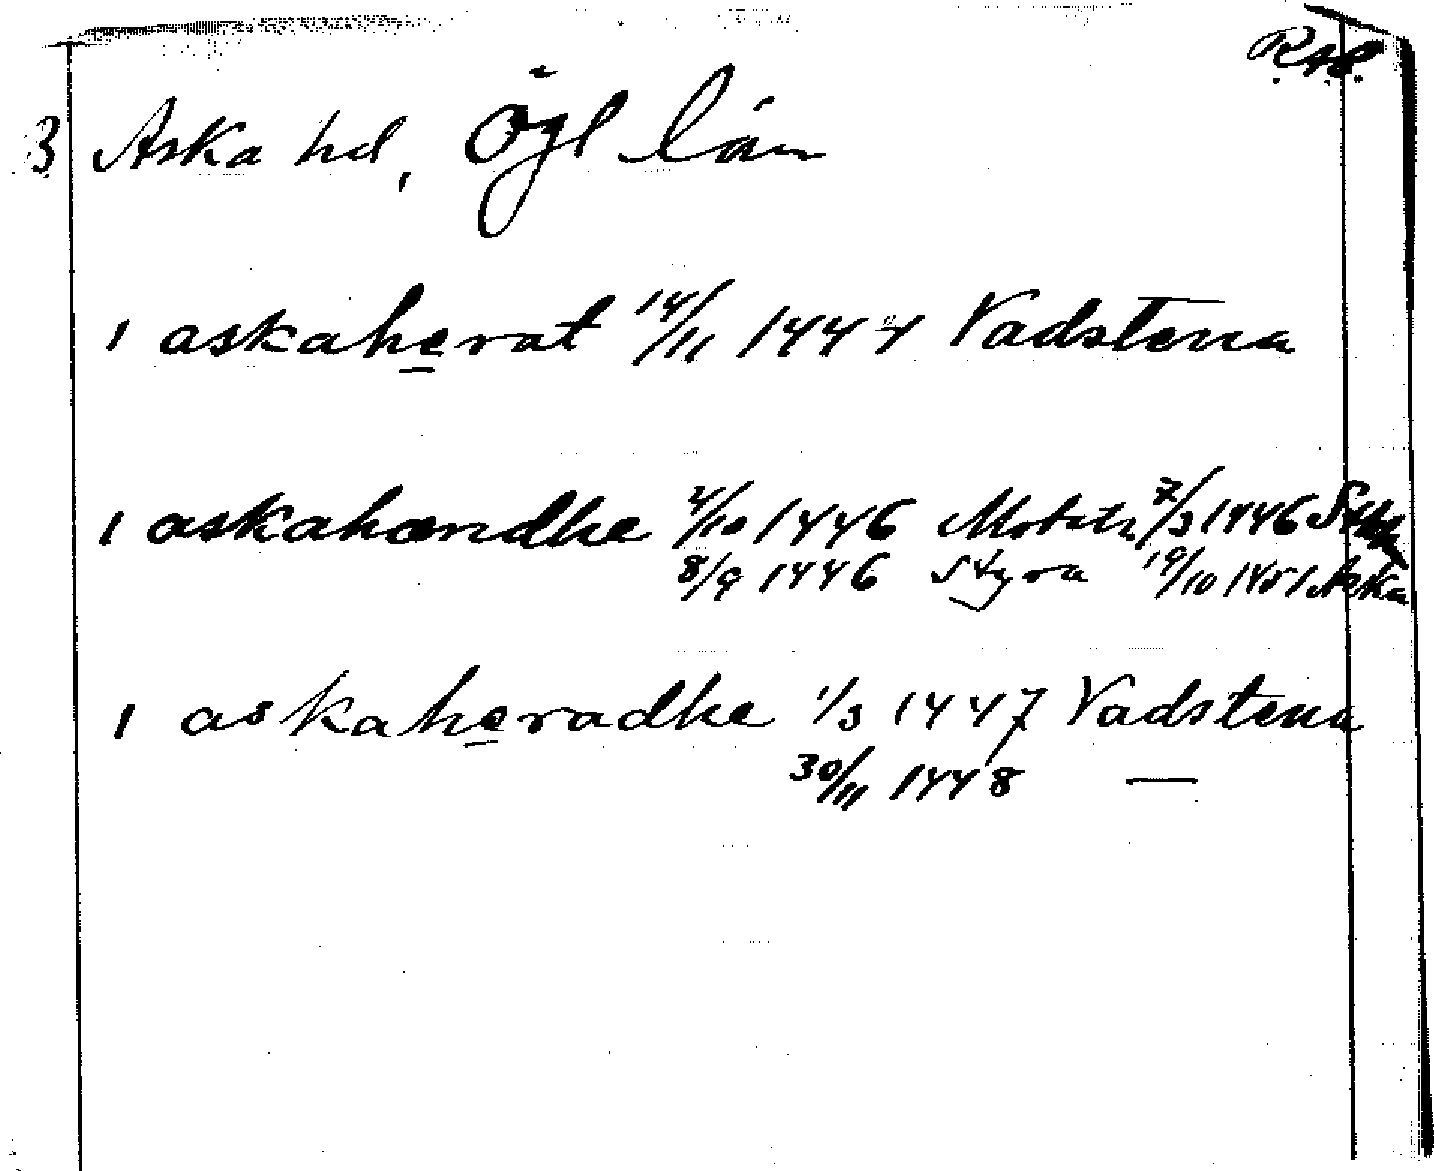 R.A.P.
3 Aska hd, Ögl län
1 askaherat 14/11 1444 Vadstena
1 askahærdhe 4/10 1446 7/3 1446
8/9 1446 Styra 19/10 1451 Aska
1 askaheradhe 1/3 1447 Vadstena
30/11 1448 —